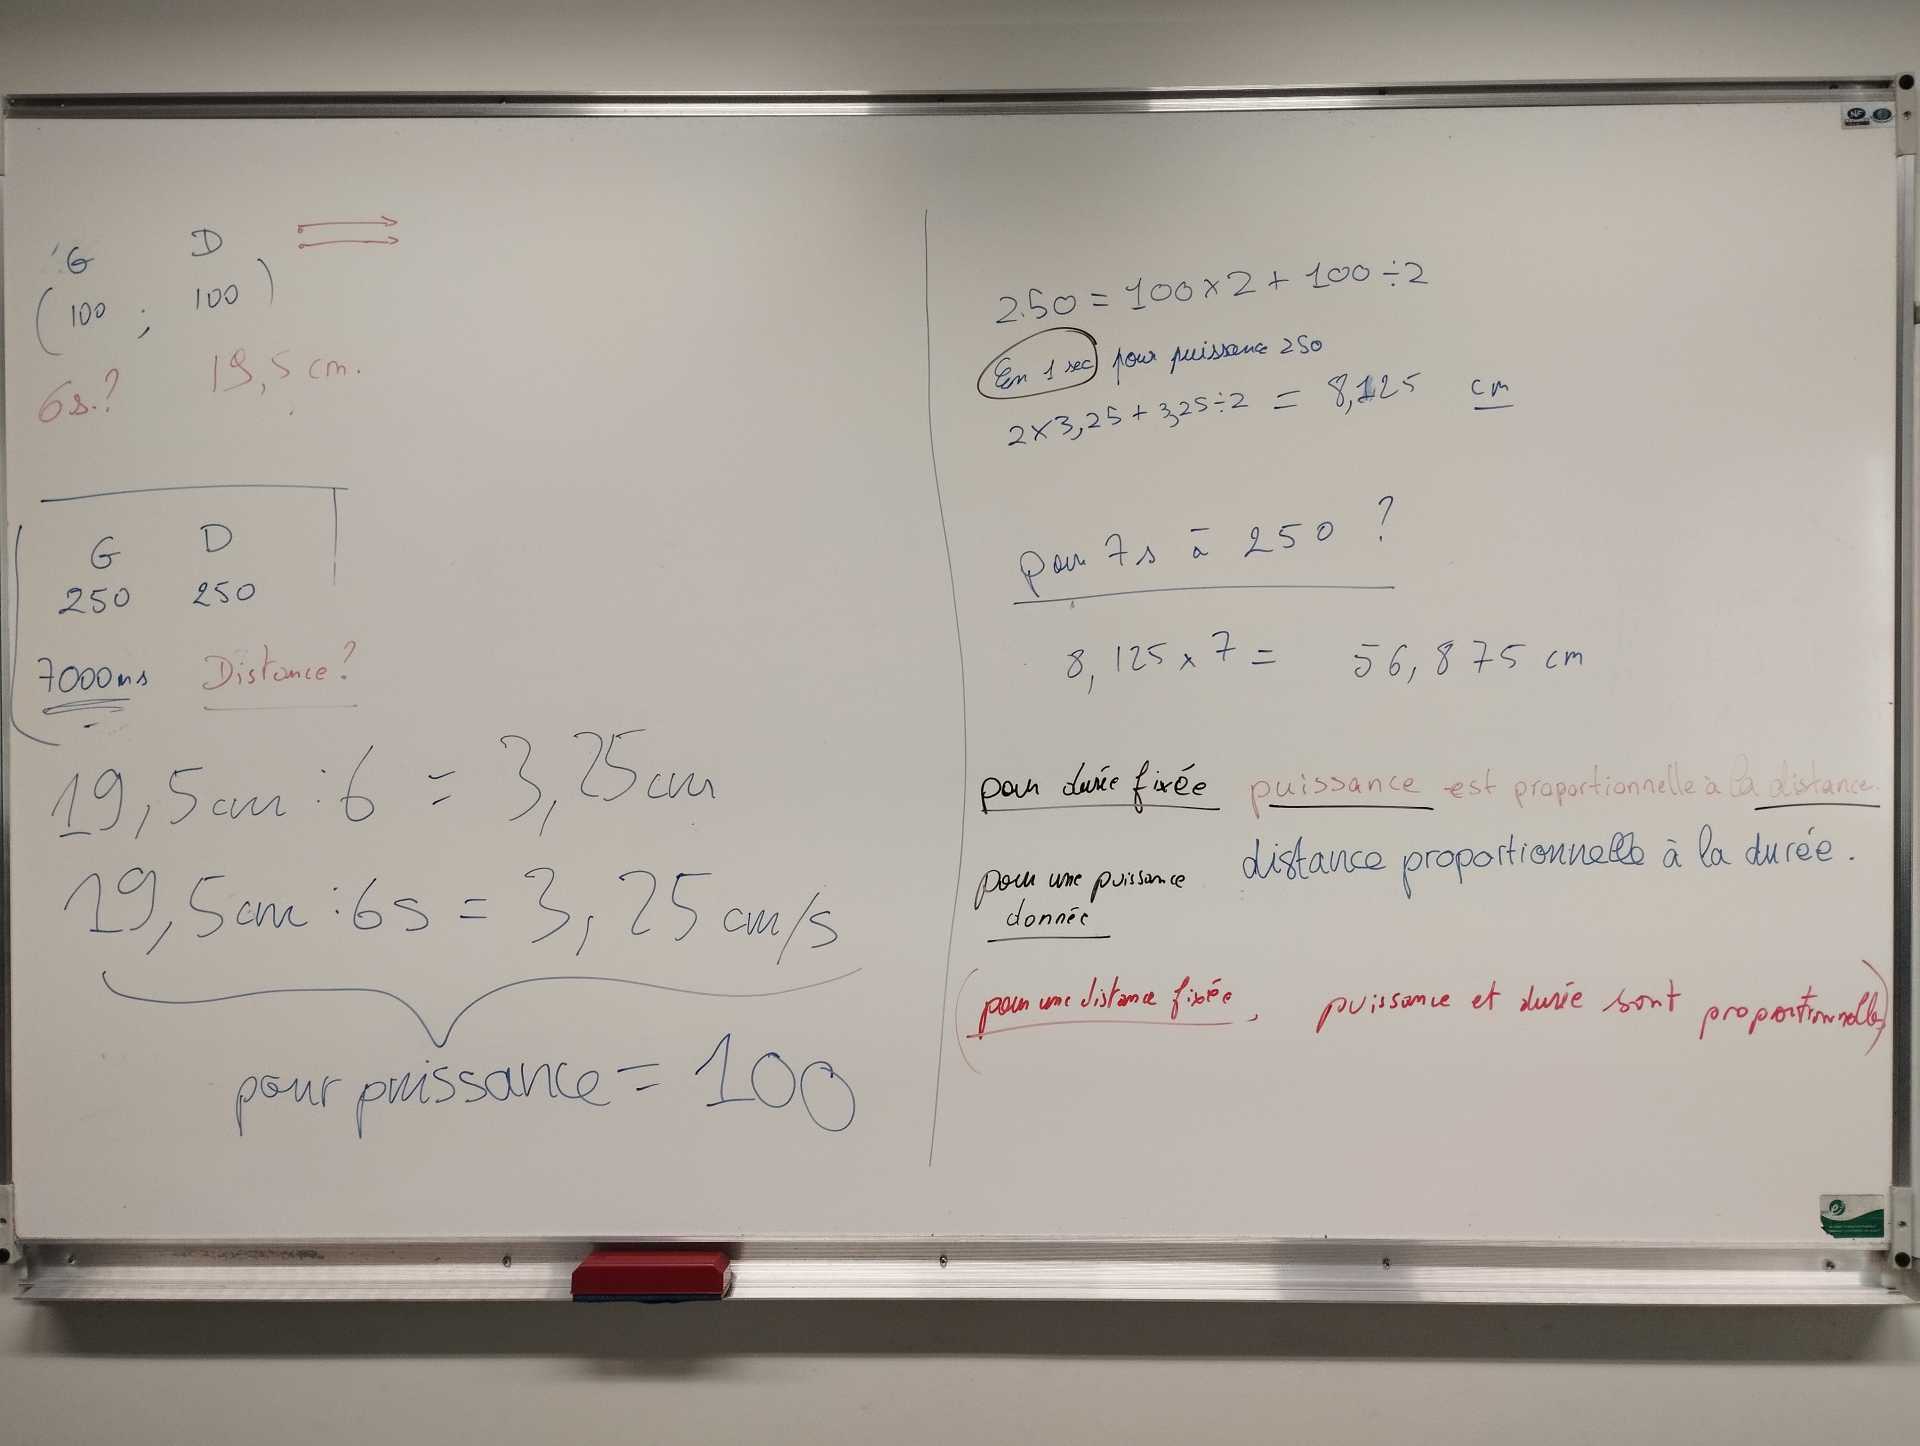 G D
(100 ; 100)
6s.? 19,5 cm.
G D
250 250
7000ms Distance?
19,5cm : 6 = 3,25cm
19,5cm : 6s = 3,25 cm/s
pour puissance = 100
250 = 100 × 2 + 100 ÷ 2
En 1 sec pour puissance 250
2 × 3,25 + 3,25 ÷ 2 = 8,125 cm
pour 7s à 250 ?
8,125 × 7 = 56,875 cm
pour durée fixée puissance est proportionnelle à la distance.
pour une puissance donnée distance proportionnelle à la durée.
(pour une distance fixée, puissance et durée sont proportionnelles)
NF